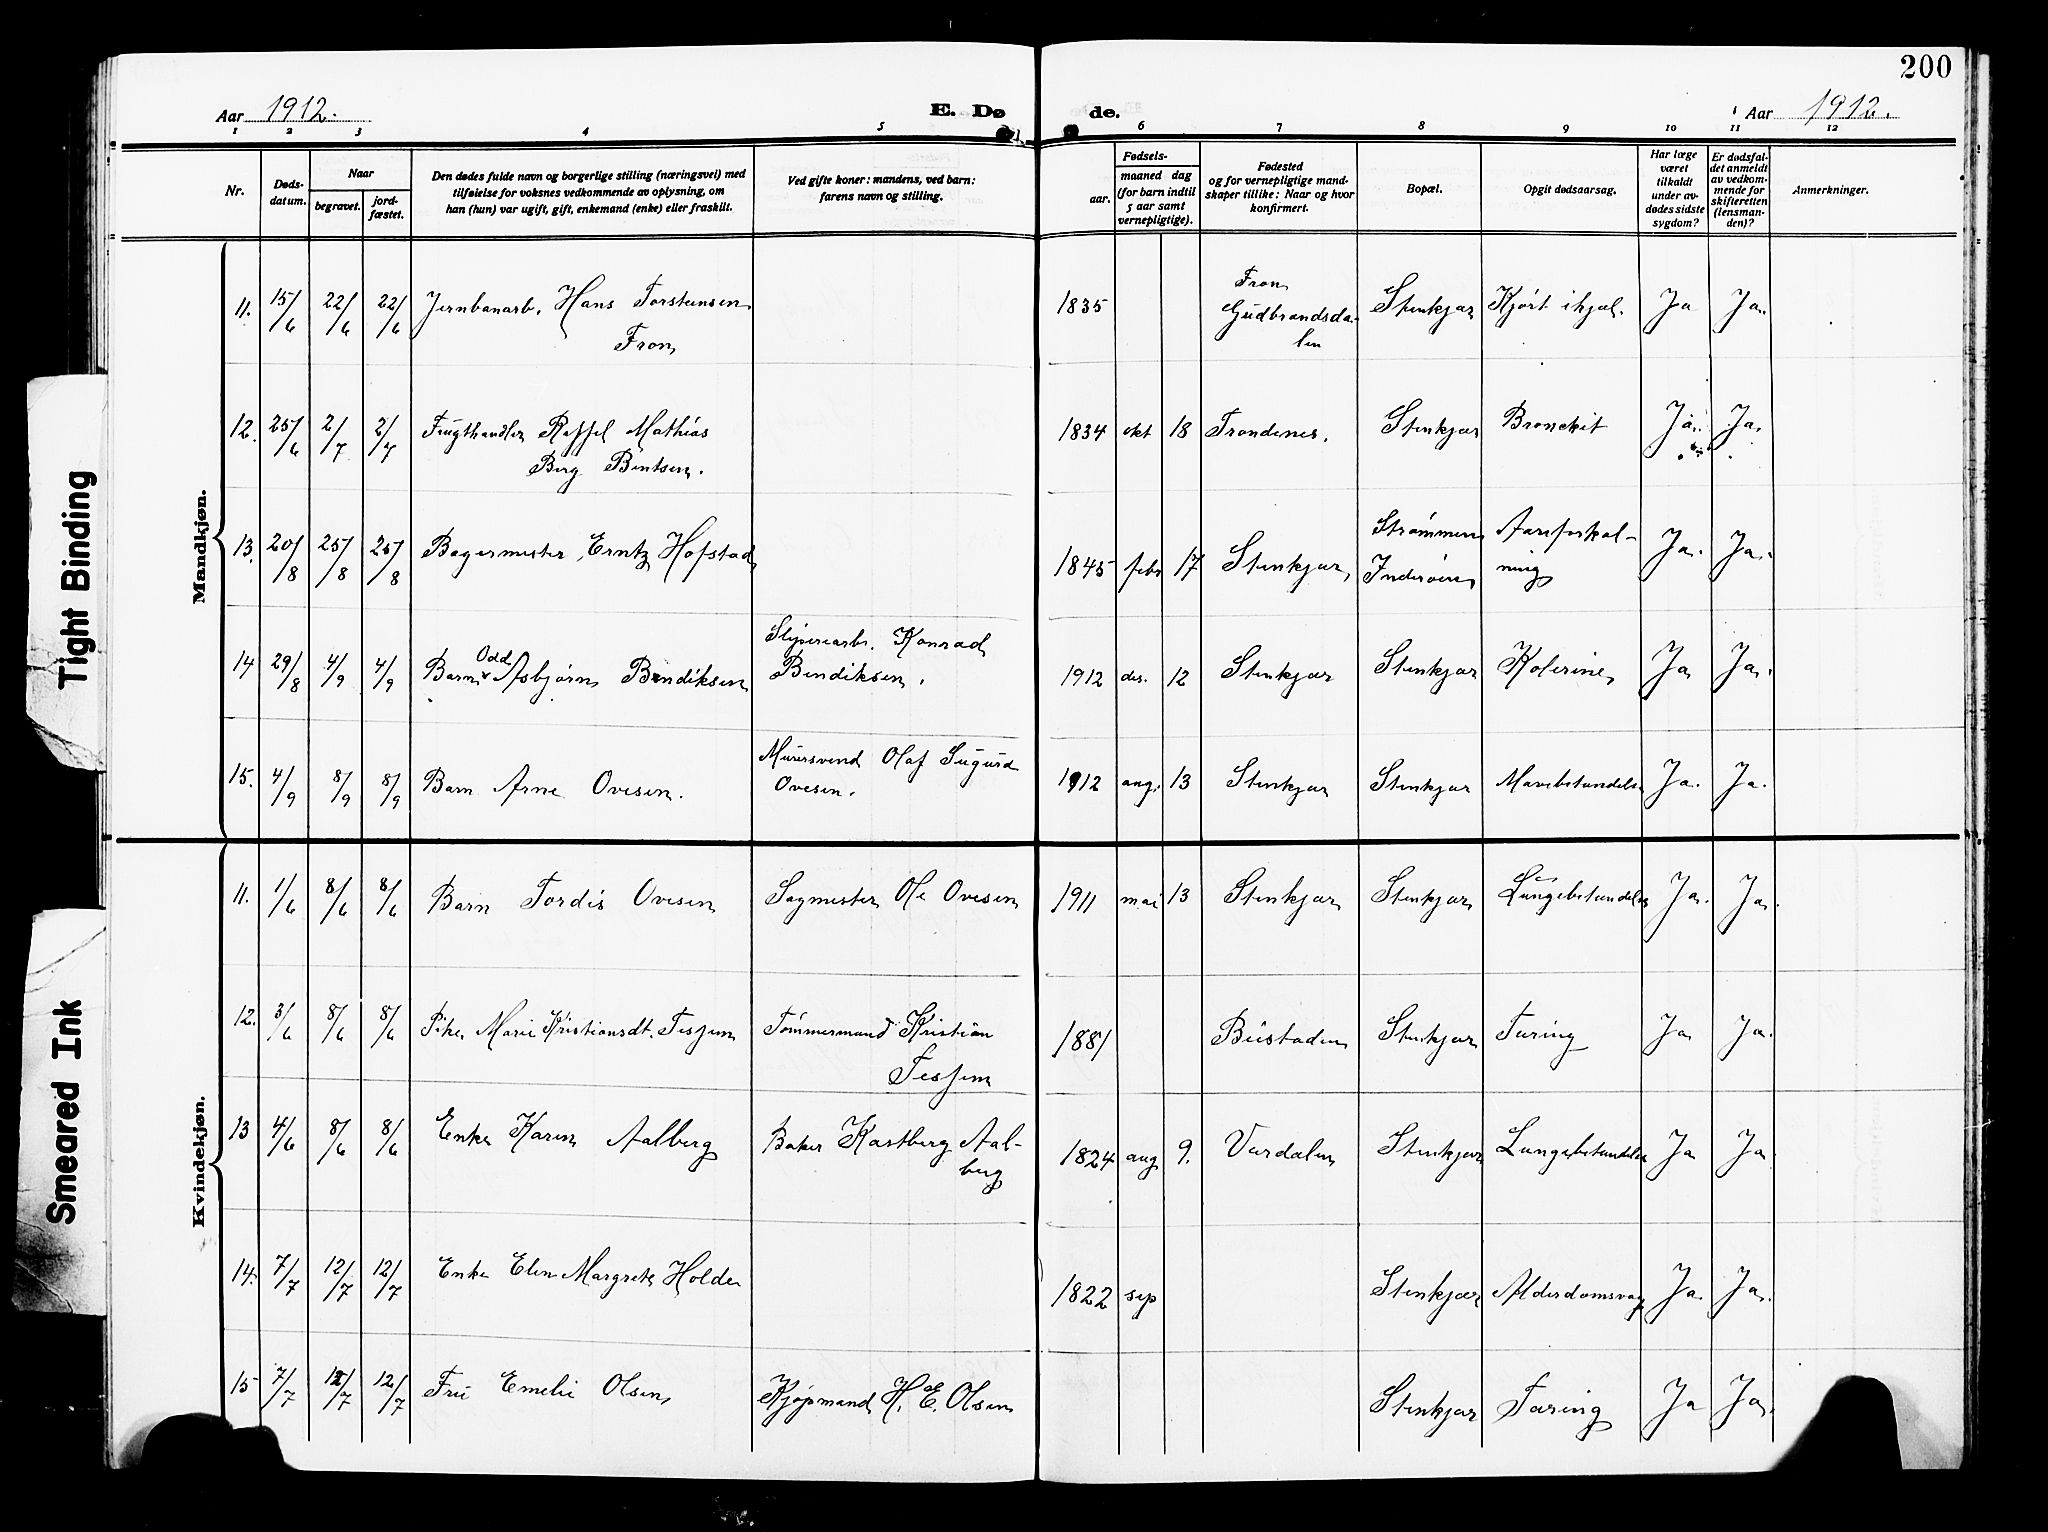 200
Aar 1912.
E. Døde.
Aar 1912.
1 2 3 4 5 6 7 8 9 10 11 12
Nr.
Døds-
datum.
Naar
begravet.
jord-
fæstet.
Den dødes fulde navn og borgerlige stilling (næringsvei) med
tilføielse for voksnes vedkommende av oplysning, om
han (hun) var ugift, gift, enkemand (enke) eller fraskilt.
Ved gifte koner: mandens, ved barn:
farens navn og stilling.
Fødsels-
aar.
maaned dag
(for barn indtil
5 aar samt
vernepligtige).
Fødested
og for vernepligtige mand-
skaper tillike: Naar og hvor
konfirmert.
Bopæl.
Opgit dødsaarsag.
Har læge
været
tilkaldt
under av-
dødes sidste
sygdom?
Er dødsfal-
det anmeldt
av vedkom-
mende for
skifteretten
(lensman-
den)?
Anmerkninger.
Mandkjøn.
11. 15/6 22/6 22/6 Jernbanarb. Hans Torstensen
Fron
1835 Fron
Gudbrandsda-
len
Stenkjær Kjørt ihjæl. Ja Ja.
12. 25/6 2/7 2/7 Frugthandler Raffel Mathias
Berg Bentsen.
1834 okt 18 Trondenes. Stenkjær Bronckit Ja. Ja.
13. 20/8 25/8 25/8 Bagermester Erntz Hofstad
1845 febr 17 Stenkjær, Strømmen
Inderøen
Aareforkal-
ning
Ja. Ja.
14 29/8 4/9 4/9 Barn Odd Asbjørn Bendiksen
Sliperiarb. Konrad
Bendiksen.
1912 des. 12 Stenkjær Stenkjær Kolerine Ja Ja.
15. 4/9 8/9 8/9 Barn Arne Ovesen.
Murersvend Olaf Sugurd
Ovesen.
1912 aug. 13 Stenkjær Stenkjær Mavebetændelse Ja. Ja.
Kvindekjøn.
11. 1/6 8/6 8/6 Barn Tordis Ovesen Sagmester Ole Ovesen 1911 mai 13 Stenkjær Stenkjær Lungebetændelse Ja. Ja.
12. 3/6 8/6 8/6 Pike Marie Kristiansdt. Tessem Tømmermand Kristian
Tessem
1881 Beistaden Stenkjær Tæring Ja Ja.
13 4/6 8/6 8/6 Enke Karen Aalberg Baker Kastberg Aal-
berg
1824 aug 9. Værdalen Stenkjær Lungebetændelse Ja Ja
14. 7/7 12/7 12/7 Enke Elen Margrete Holden 1822 sep Stenkjær Alderdomsvag Ja Ja.
15 7/7 12/7 12/7 Fru Emelie Olsen Kjøpmand H. E. Olsen Stenkjær Tæring Ja Ja.
Tight Binding
Smeared Ink